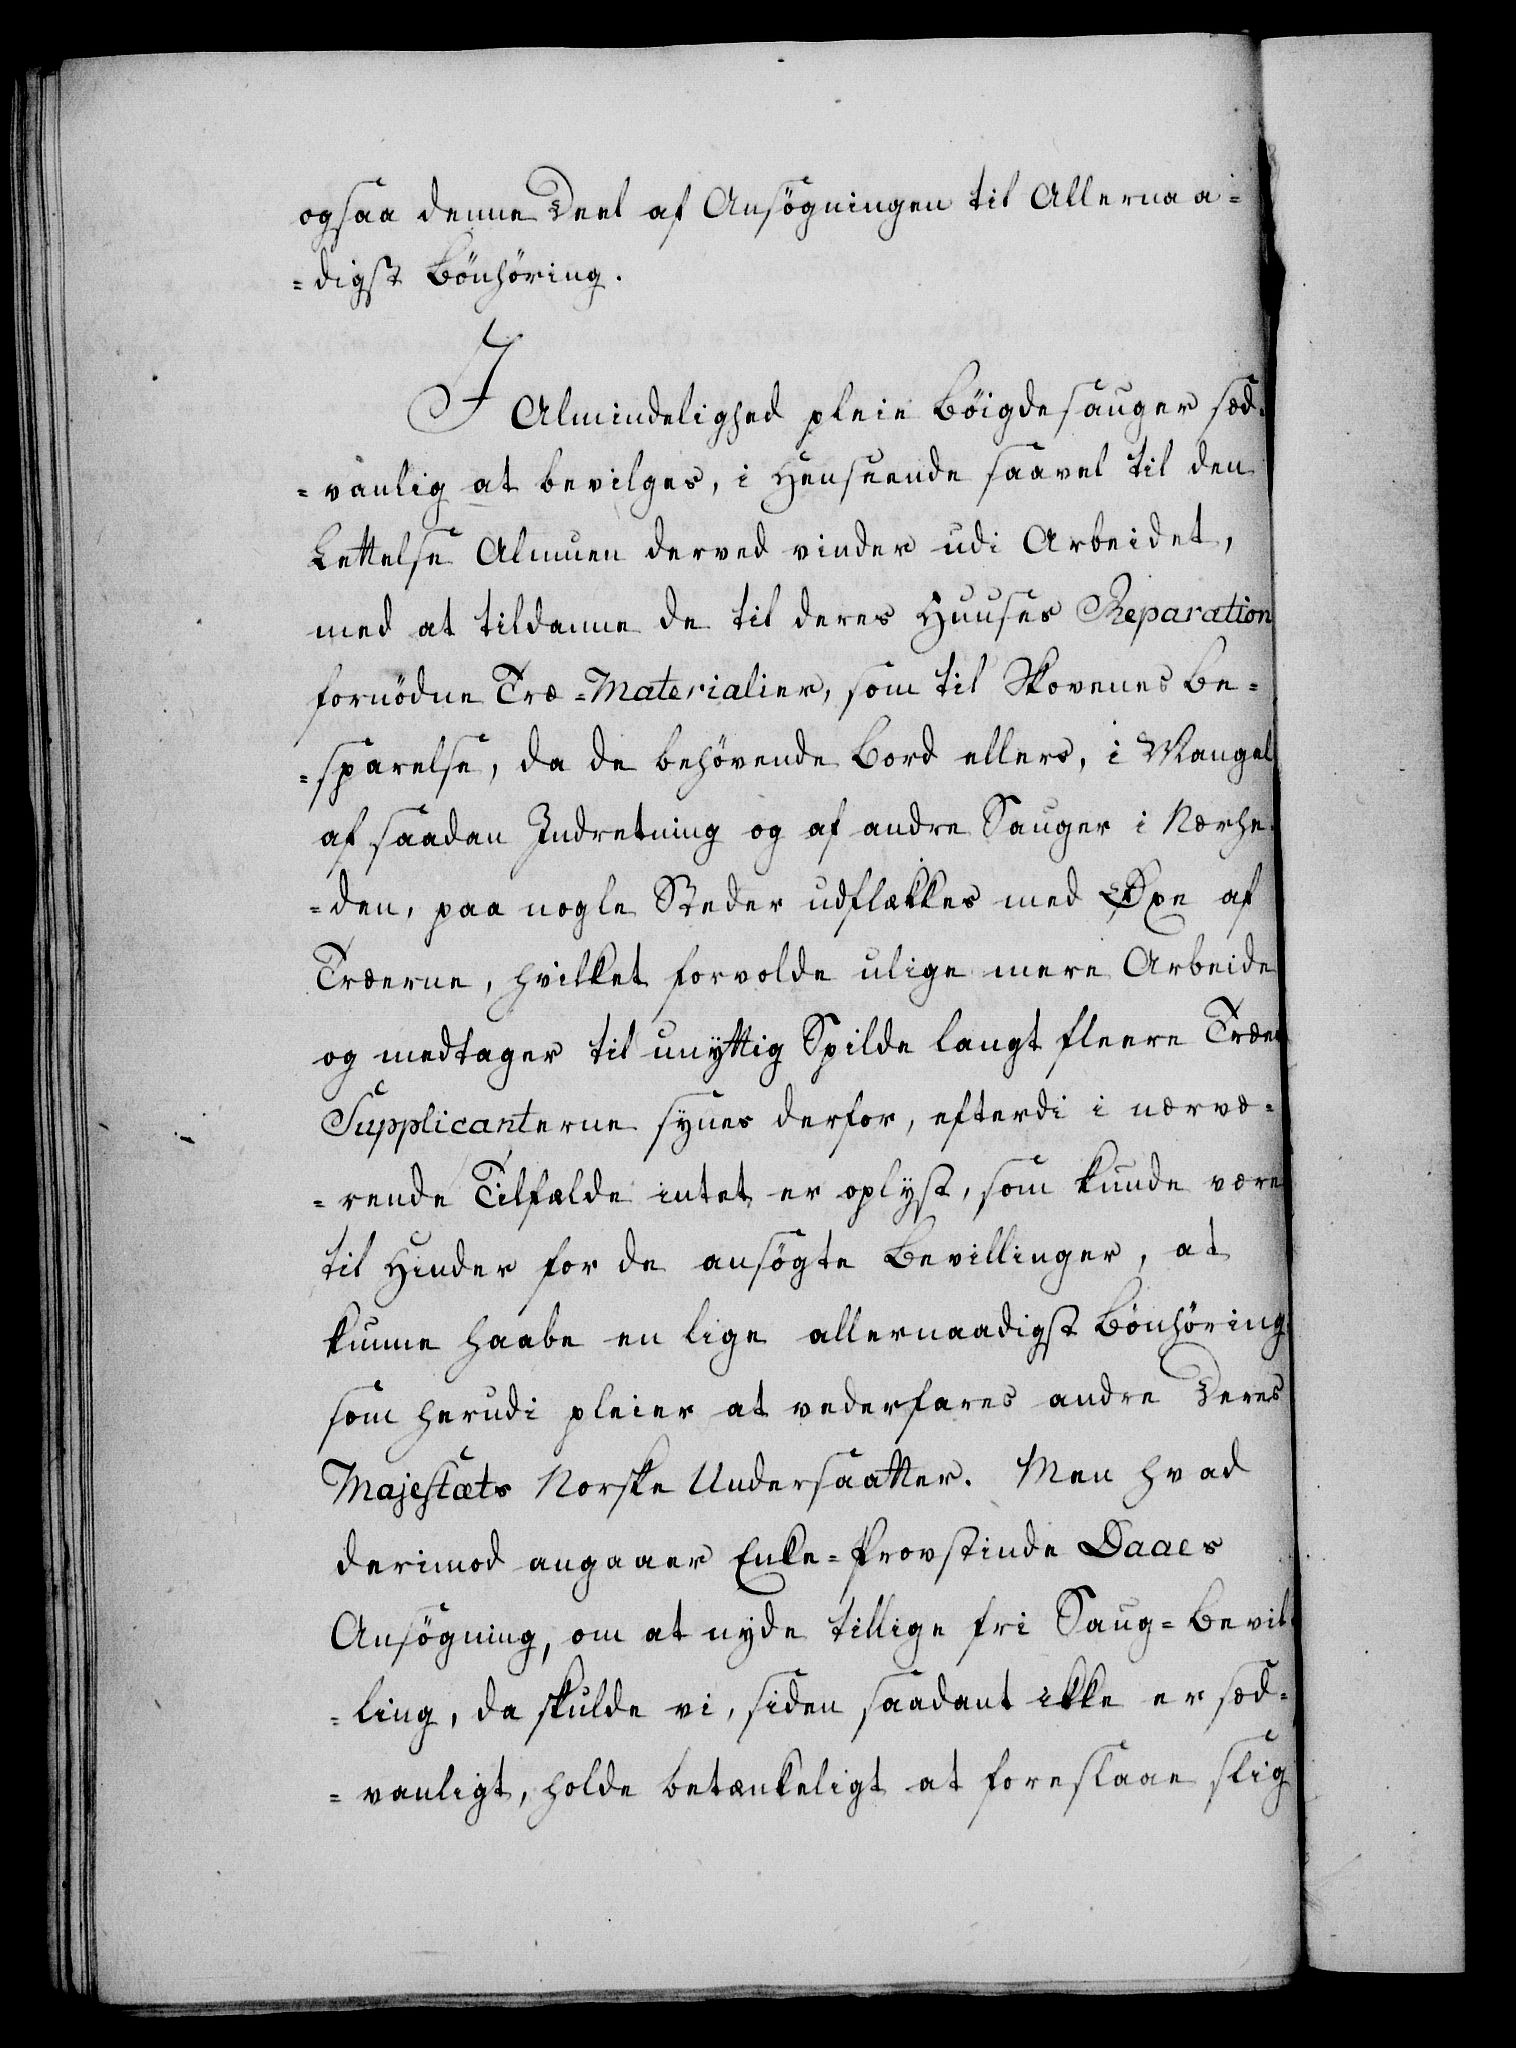 ogsaa denne Deel af Ansögningen til Allernaa-
-digst Bönhöring.
I Almindelighed pleie Böigdesauger sæd-
-vanlig at bevilges, i Henseende saavel til den
Lettelse Almuen derved vinder udi Arbeidet,
med at tildanne de til deres Huuses Reparation
fornödne Træ-Materialier, som til Skovenes Be-
-sparelse, da de behövende Bord ellers, i Mangel
af saadan Indretning og af andre Sauger i Nærhe-
-den, paa nogle Steder udflækkes med Øxe af
Træerne, hvilket forvolde ulige mere Arbeide
og medtager til unÿttig Spilde langt fleere Træer
Supplicanterne synes derfor, efterdi i nærvæ-
-rende Tilfælde intet er oplÿst, som kunde være
til Hinder for de ansögte Bevillinger, at
kunne haabe en lige allernaadigst Bönhöring,
som herudi pleier at vederfares andre Deres
Majestæts Norske Undersaatter. Men hvad
derimod angaaer Enke-Provstinde Daaes
Ansögning, om at nyde tillige fri Saug-Bevil-
-ling, da skulde vi, siden saadant ikke er sæd-
-vanligt, holde betænkeligt at foreslaae slig